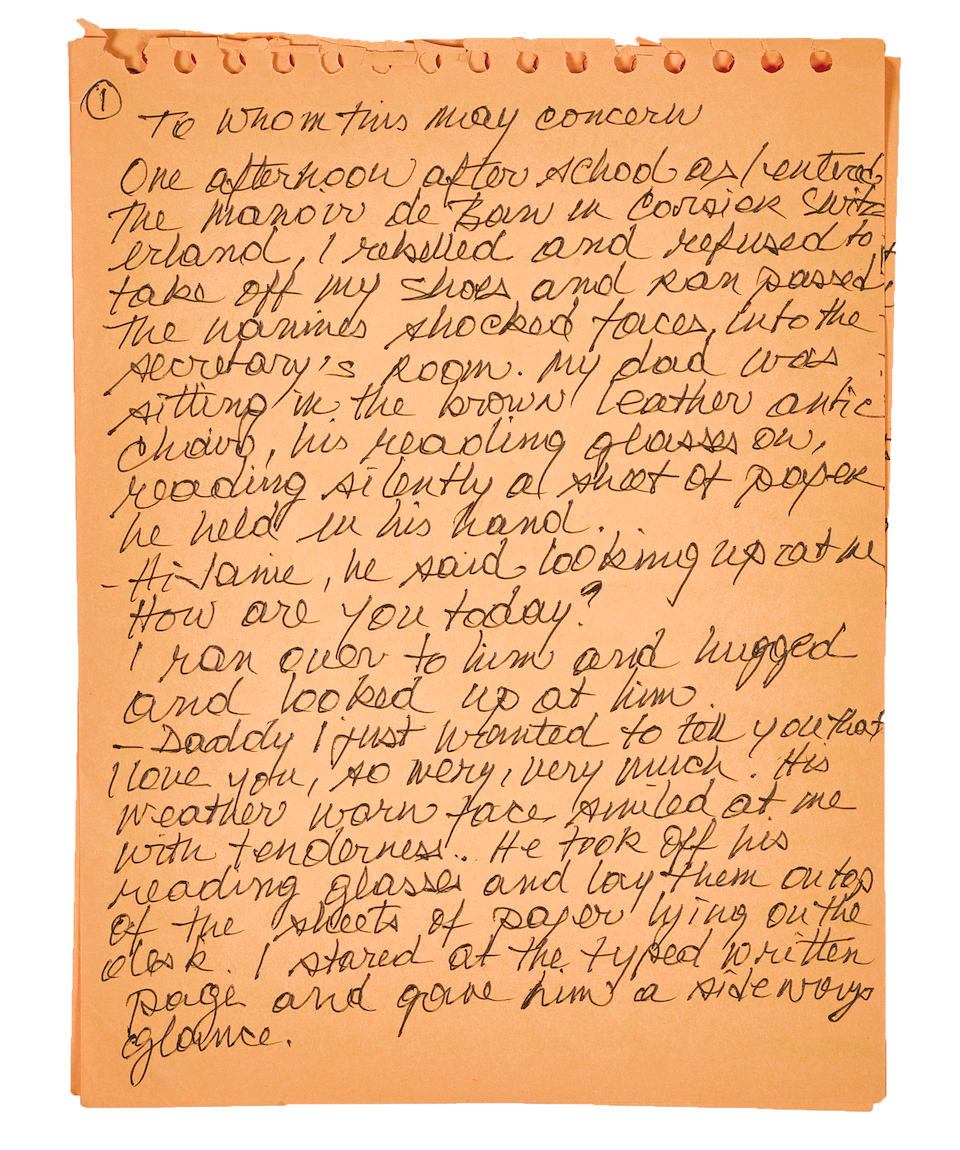 ①
To whom this may concern
One afternoon after school as I entered
the manoir de Ban in Corsier Switz
erland, I rebelled and refused to
take off my shoes and ran passed
the nannies shocked faces, into the
secretary's room. My dad was
sitting in the brown leather antic
chair, his reading glasses on,
reading silently a sheet of paper
he held in his hand.
- Hi Janie, he said looking up at me
How are you today?
I ran over to him and hugged
and looked up at him.
- Daddy I just wanted to tell you that
I love you, so very, very much. His
weather worn face smiled at me
with tenderness. He took off his
reading glasses and lay them on top
of the sheets of paper lying on the
desk. I stared at the typed written
page and gave him a sideways
glance.